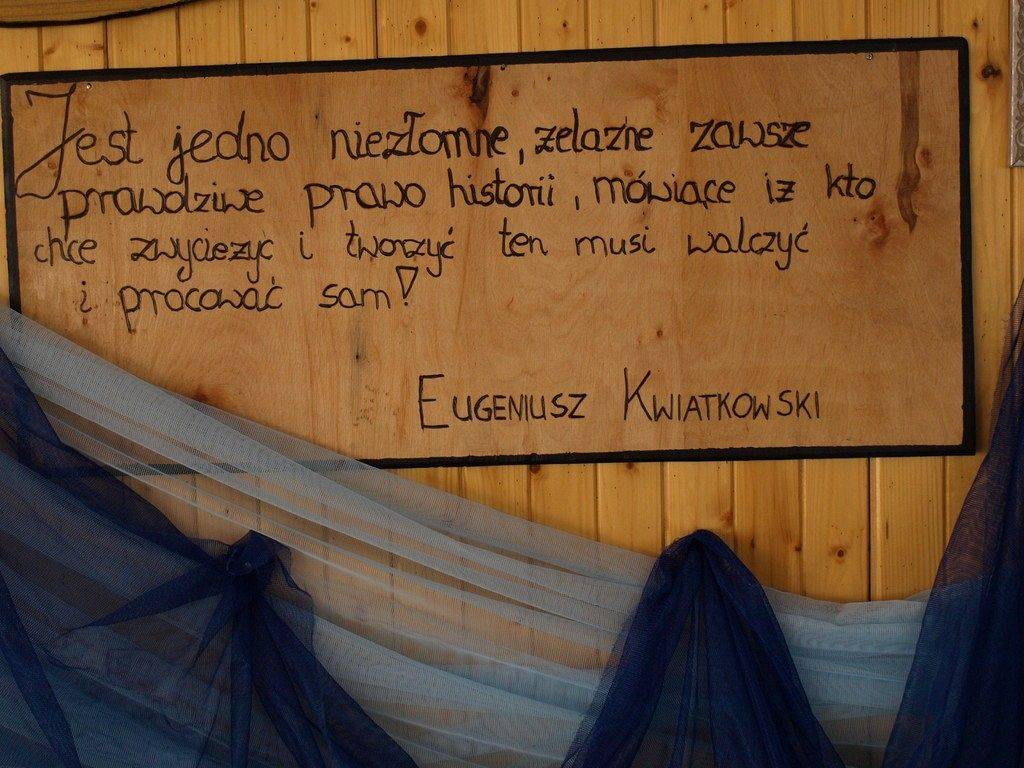 Jest jedno niezłomne, zelazne zawsze
prawdziwe prawo historii, mówiące iz kto
chce zwyciezyc i tworzyć ten musi walczyć
i pracować sam!
EUGENIUSZ KWIATKOWSKI